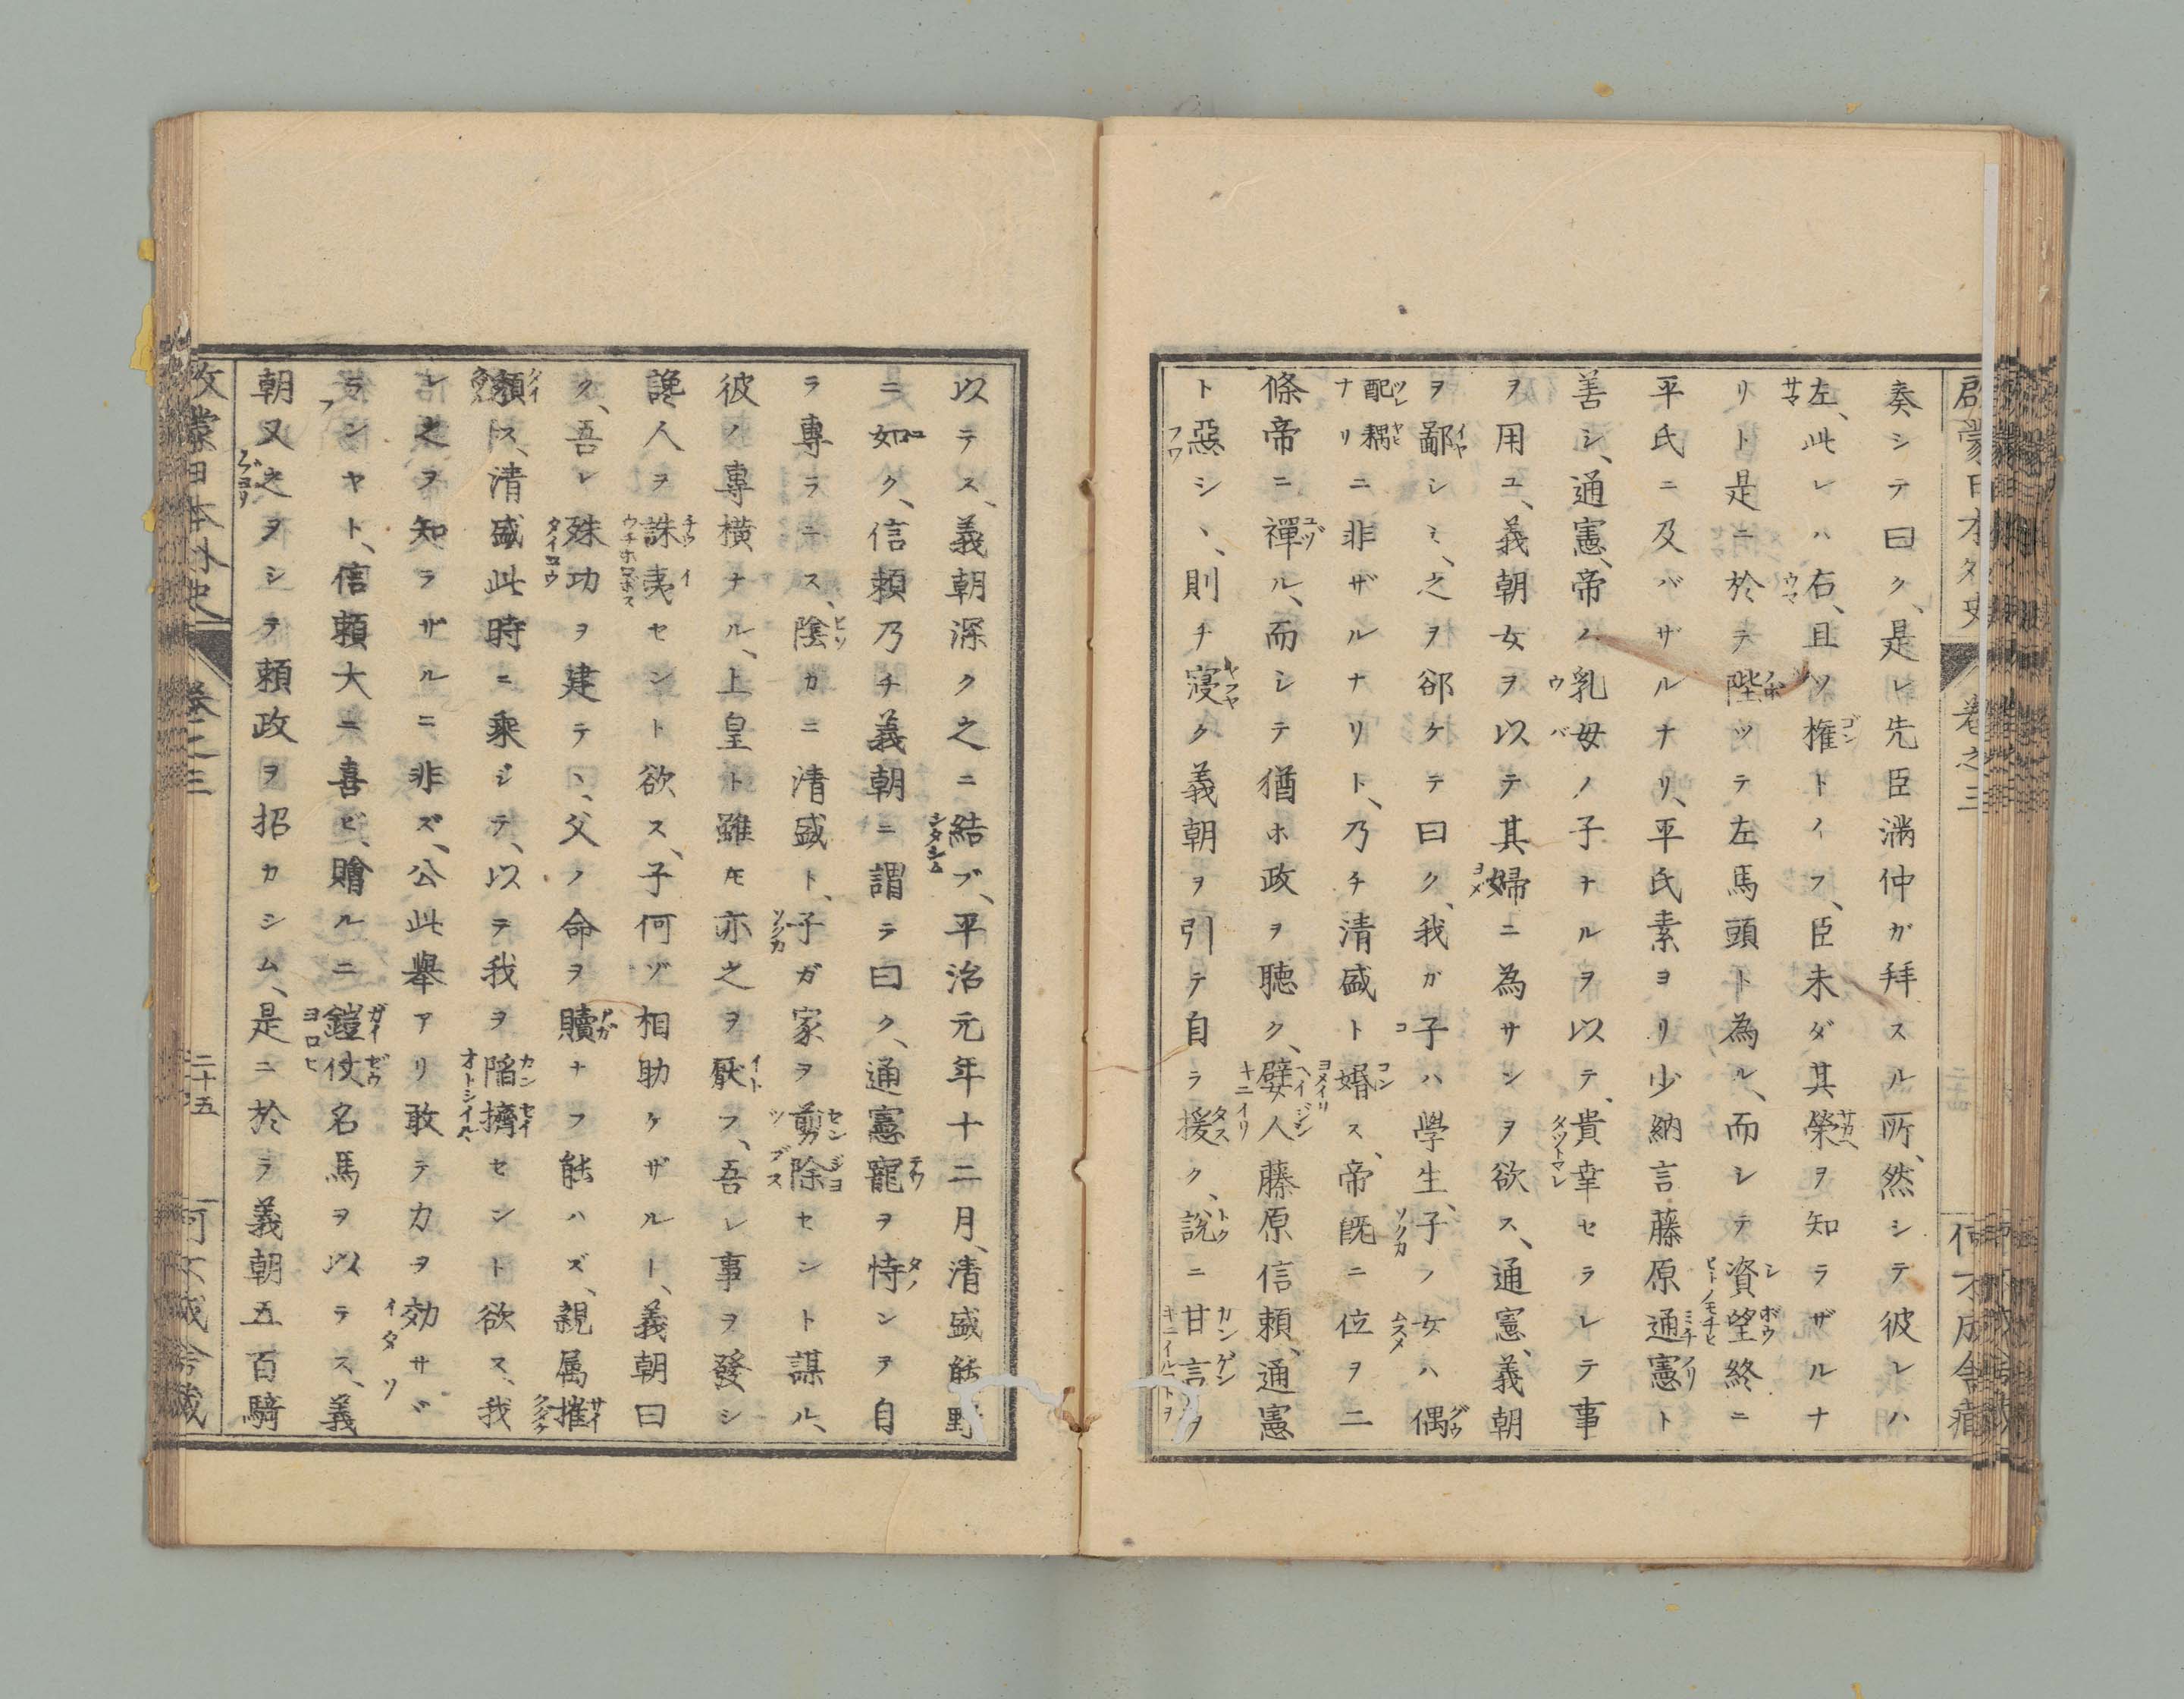 啓蒙日本外史 卷之三 何不成舎蔵
奏シテ曰ク、是レ先臣満仲ガ拜スル所、然シテ彼レハ
左、此レハ右、且ツ權トイフ、臣未ダ其榮ヲ知ラザルナ
リト是ニ於テ陞ツテ左馬頭ト為ル、而シテ資望終ニ
平氏ニ及バザルナリ、平氏素ヨリ少納言藤原通憲ト
善シ、通憲、帝ノ乳母ノ子ナルヲ以テ、貴幸セラレテ事
ヲ用ユ、義朝女ヲ以テ其婦ニ為サンヲ欲ス、通憲、義朝
ヲ鄙シミ、之ヲ郤ケテ曰ク、我ガ子ハ學生、子ノ女ハ偶
配耦ナリニ非ザルナリト、乃チ清盛ト婚ス、帝既ニ位ヲ二
條帝ニ禪ル、而シテ猶ホ政ヲ聴ク、嬖人藤原信頼、通憲
ト惡シヽ、則チ寖ク義朝ヲ引テ自ラ援ク、説ニ甘言ヲ
以テス、義朝深ク之ニ結ブ、平治元年十二月、清盛熊野
ニ如ク、信頼乃チ義朝ニ謂ラ曰ク、通憲寵ヲ恃ンヲ自
ラ專ラニス、陰カニ清盛ト、子ガ家ヲ剪除セント謀ル、
彼ノ專横ナル、上皇ト雖𪜈亦之ヲ厭フ、吾レ事ヲ發シ
讒人ヲ誅夷セント欲ス、子何ゾ相助ケザルト、義朝曰
ク、吾レ殊功ヲ建テヽ、父ノ命ヲ贖ナフ能ハズ、親属摧
頽ス、清盛此時ニ乗シテ、以テ我ヲ陥擠セシト欲ス、我
レ之ヲ知ラザルニ非ズ、公此舉アリ敢テカヲ効サヾ
ランヤト、信頼大ニ喜ビ、贈ルニ鎧仗名馬ヲ以テス、義
朝又之ヲシテ頼政ヲ招カシム、是ニ於ラ義朝五百騎
啓蒙日本外史 卷之三 二十五 何不成舎蔵